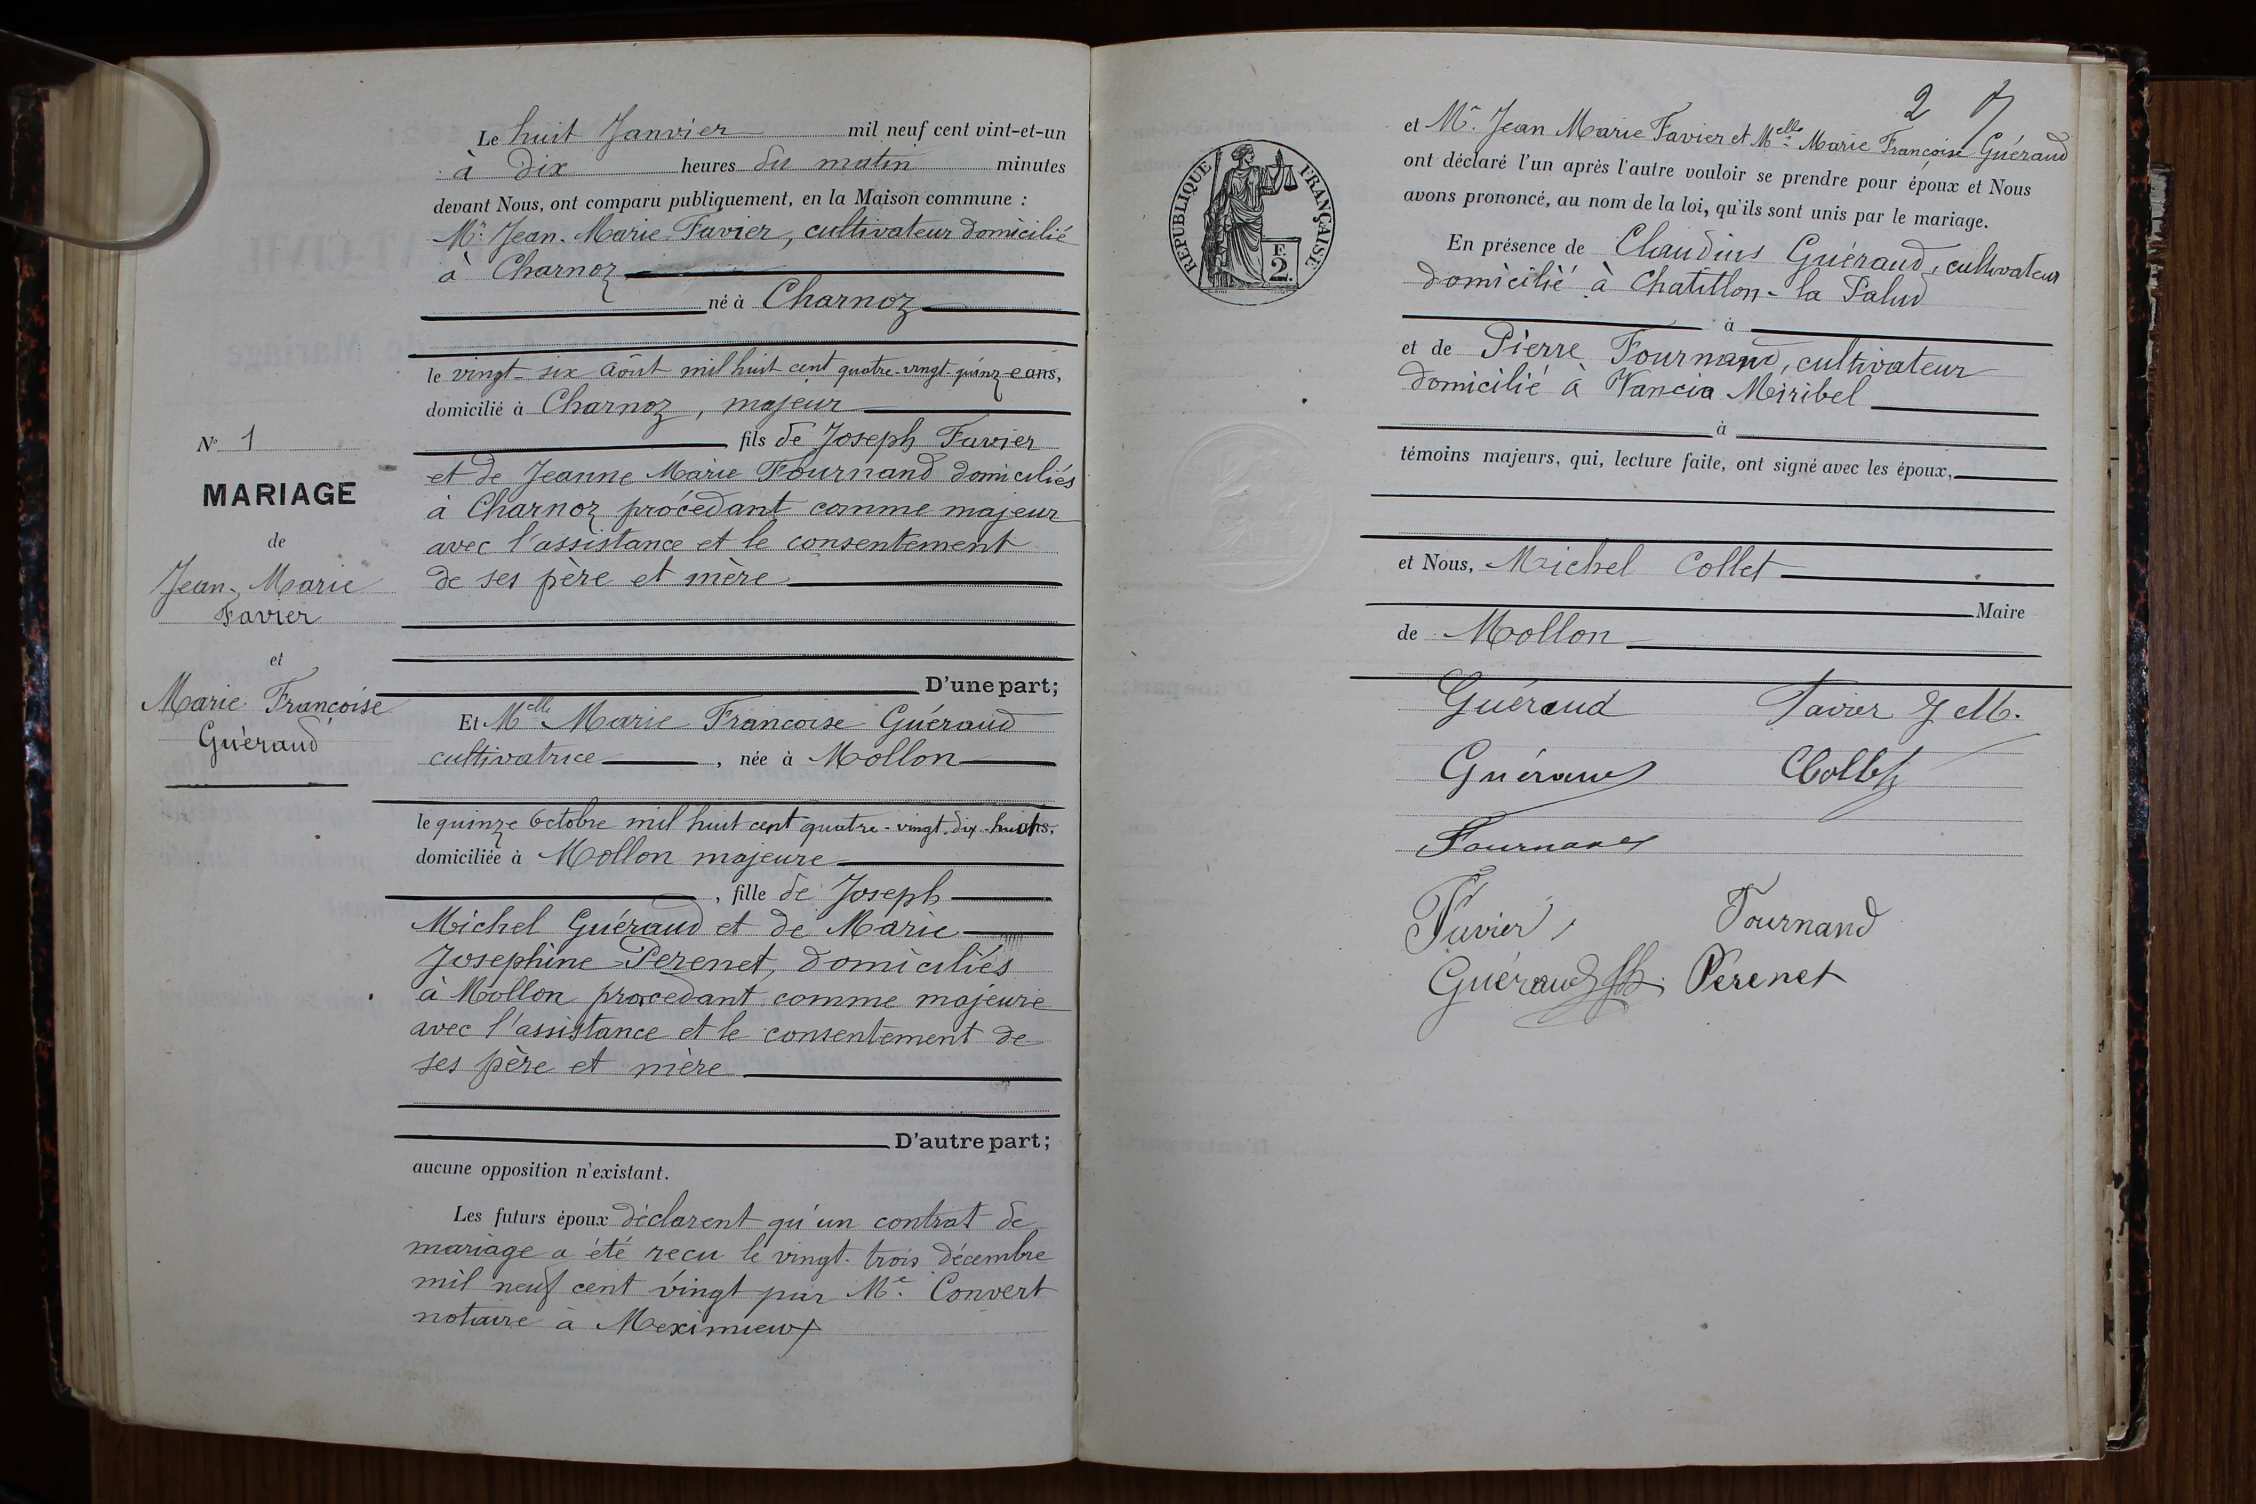 Le huit Janvier mil neuf cent vint-et-un
à Dix heures du matin minutes
devant Nous, ont comparu publiquement, en la Maison commune :
Mr. Jean-Marie Favier, cultivateur domicilié
à Charnoz
né à Charnoz
le vingt-six Août mil huit cent quatre-vingt-quinze ans,
domicilié à Charnoz, majeur
fils de Joseph Favier
et de Jeanne Marie Fournand domiciliés
à Charnoz procédant comme majeur
avec l'assistance et le consentement
de ses père et mère
D'une part;
Et Melle Marie Francoise Guéraud
cultivatrice, née à Mollon
le quinze Octobre mil huit cent quatre-vingt-dix-huit ans,
domiciliée à Mollon majeure
, fille de Joseph
Michel Guéraud et de Marie
Josephine Perenet, domiciliés
à Mollon procédant comme majeure
avec l'assistance et le consentement de
ses père et mère
D'autre part;
aucune opposition n'existant.
Les futurs époux déclarent qu'un contrat de
mariage a été recu le vingt-trois décembre
mil neuf cent vingt par Me. Convert
notaire à Meximieux
No 1
MARIAGE
de
Jean-Marie
Favier
et
Marie Françoise
Guéraud
2
RÉPUBLIQUE FRANÇAISE
F.
2.
et Mr. Jean Marie Favier et Melle Marie Françoise Guéraud
ont déclaré l'un après l'autre vouloir se prendre pour époux et Nous
avons prononcé, au nom de la loi, qu'ils sont unis par le mariage.
En présence de Claudius Guéraud, cultivateur
domicilié à Chatillon-la Palud
à
et de Pierre Fournand, cultivateur
domicilié à Vancia Miribel
à
témoins majeurs, qui, lecture faite, ont signé avec les époux,
et Nous, Michel Collet
Maire
de Mollon
Guéraud Favier J M.
Guéraud Collet
Fournand
Favier Fournand
Guéraud Perenet